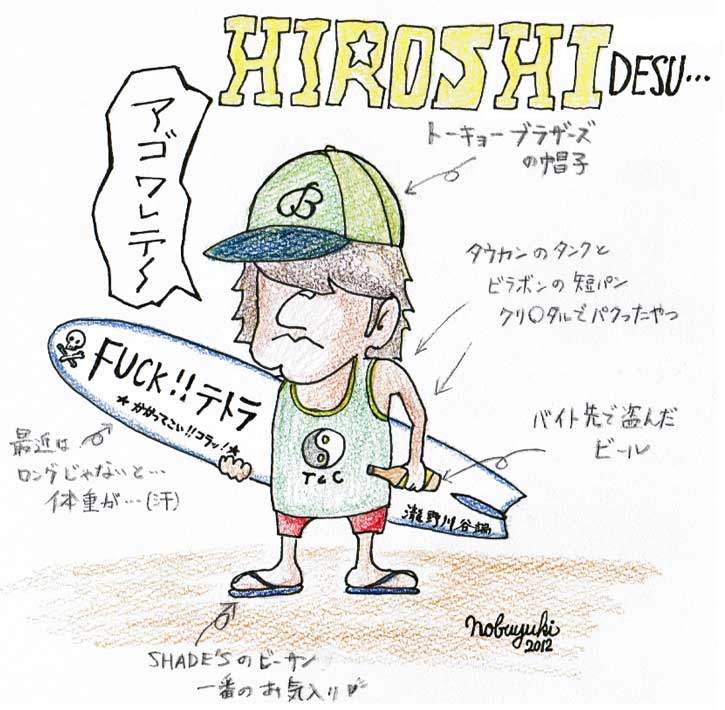 HIROSHI DESU…
アゴワレテ〜
トーキョーブラザーズ
の帽子
B
タウカンのタンクと
ビラボンの短パン
クリ○タルでパクったやつ
FUCK!!テトラ
★かかってこい!!コラッ!★
バイト先で盗んだ
ビール
最近は
ロングじゃないと…
体重が…(汗)
T&C
瀧野川谷端
SHADE'Sのビーサン
一番のお気入り
nobuyuki
2012